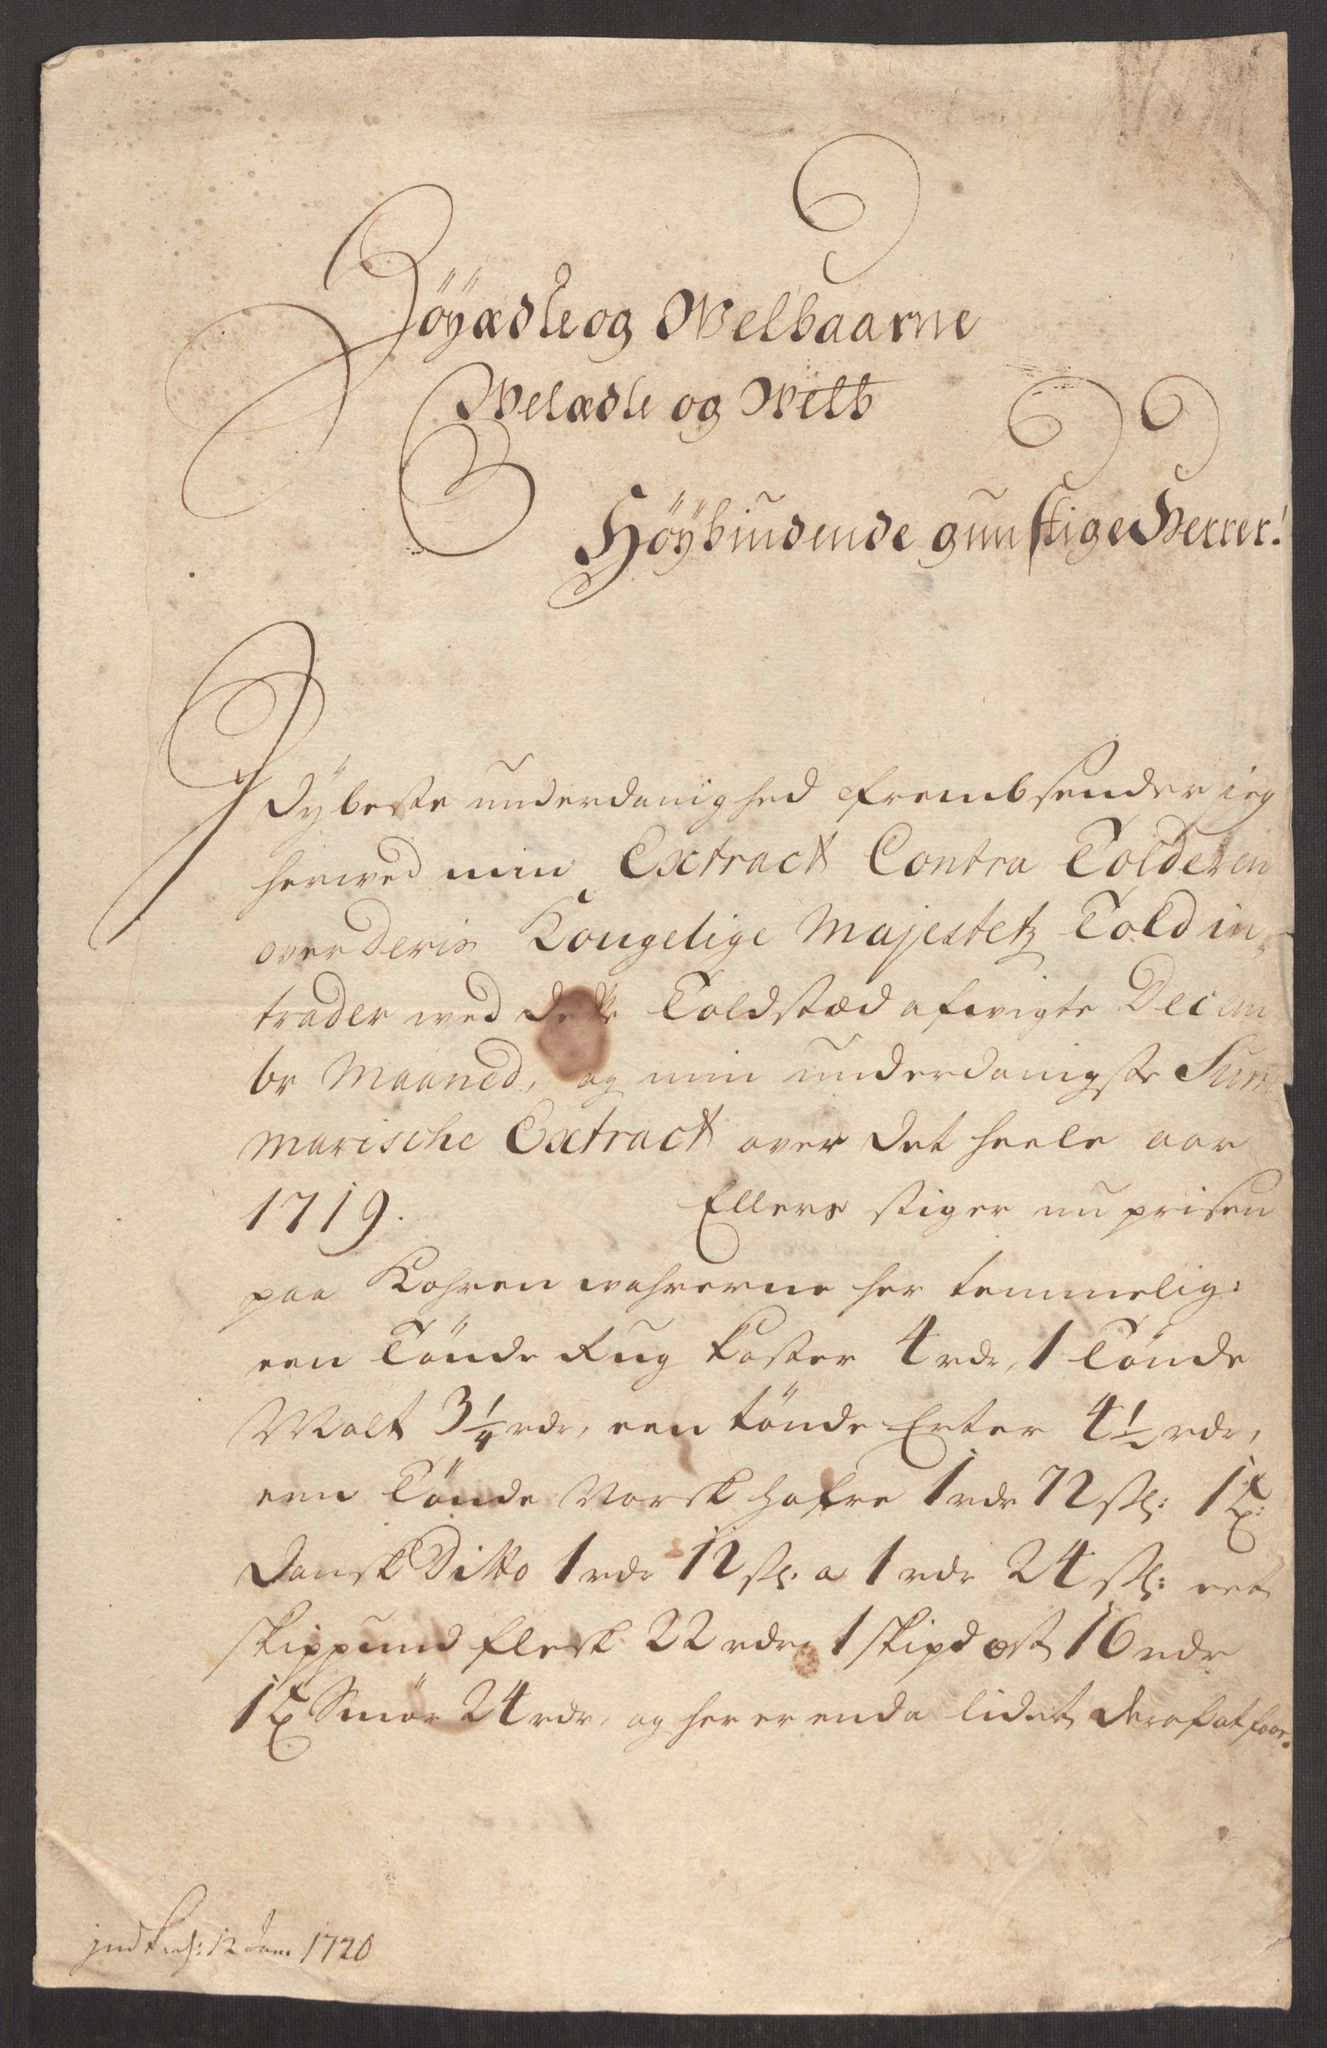 Höyædle og Welbaarne
Welædle og Welb
Höybiudende gunstige Herrer!
I dybeste underdanighed frembsender ieg
herwed min Extract Contra Tolderen
over Deris Kongelige Majestetz Told in,
trader wed dette Toldstæd afwigte Decem
br Maaned, og min underdanigste Sum
marische Extract over det heele aar
1719. Ellers stiger nu prisen
paa Kohren wahrerne her temmelig:
een Tönde Rug koster 4 rdr, 1 Tönde
Malt 3 1/4 rdr, een tönde Erter 4 1/2 rdr,
een Tönde Norsk hafre 1 rdr 72 sk: 1 T:
Dansk Ditto 1 rdr 12 sk: a 1 rdr 24 sk: eet
skippund flesk 22 rdr, 1 skipd ost 16 rdr
1 T Smör 24 rdr, og her er enda lidet deraf at faae.
ind 12 Jan 1720